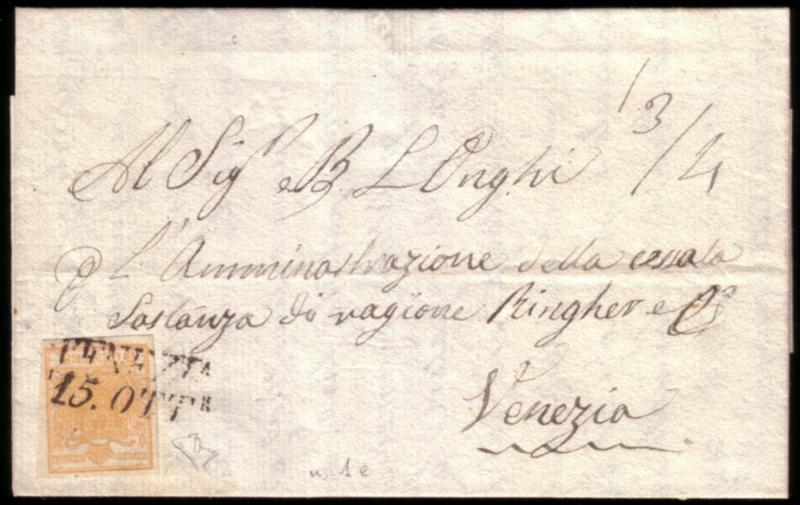 1 3/4
Al Sigr B. LOnghi
p L'Amministrazione della cessata
Sostanza di ragione Ringher e Co
VENEZIA
15. OTTR
Venezia
n. 1e